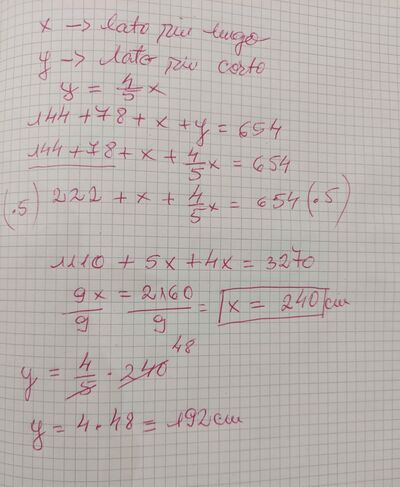 x → lato più lungo
y → lato più corto
y = 4/5 x
144 + 78 + x + y = 654
144 + 78 + x + 4/5 x = 654
(·5) 222 + x + 4/5 x = 654 (·5)
1110 + 5x + 4x = 3270
9x/9 = 2160/9 = x = 240 cm
y = 4/5 · 240 48
y = 4 · 48 = 192 cm